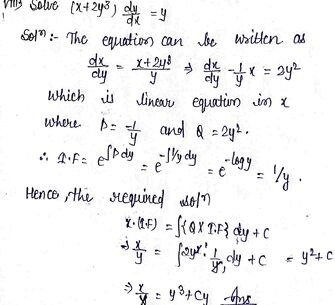 Solve (x+2y³) dy/dx = y
Solⁿ:- The equation can be written as
dx/dy = (x+2y³)/y ⇒ dx/dy - 1/y x = 2y²
which is linear equation in x
where P = -1/y and Q = 2y².
∴ I.F = e^∫P dy = e^-∫1/y dy = e^-log y = 1/y.
Hence, the required solⁿ
x·(I.F) = ∫{Q X I.F} dy + C
⇒ x/y = ∫2y²·1/y, dy + C = y² + C
⇒ x = y³ + Cy Ans